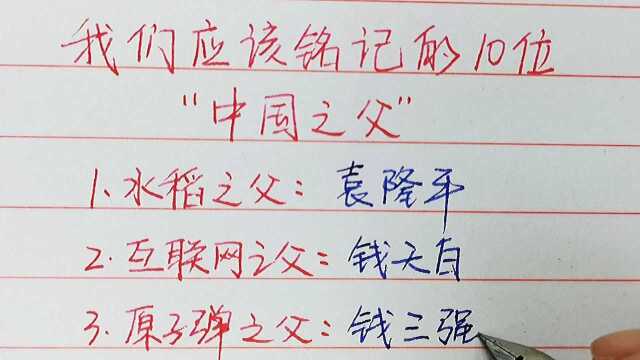 我们应该铭记的10位
“中国之父”
1.水稻之父：袁隆平
2.互联网之父：钱天白
3.原子弹之父：钱三强